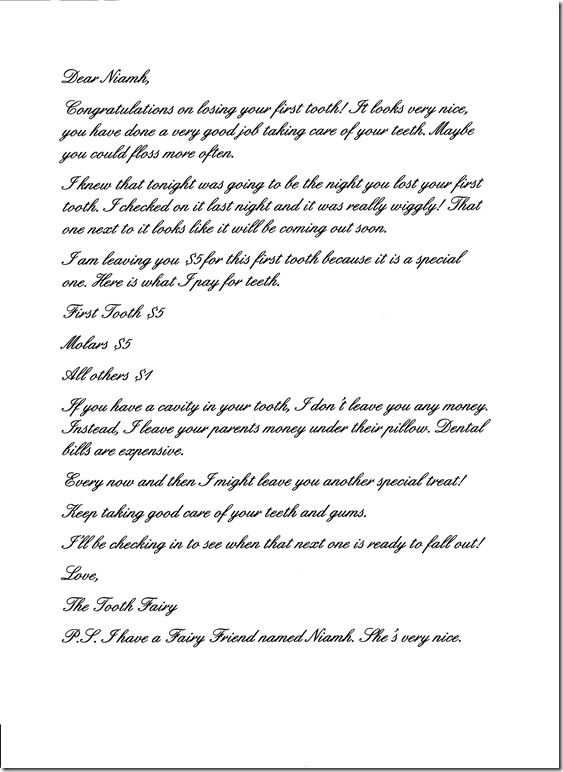 Dear Niamh,
Congratulations on losing your first tooth! It looks very nice,
you have done a very good job taking care of your teeth. Maybe
you could floss more often.
I knew that tonight was going to be the night you lost your first
tooth. I checked on it last night and it was really wiggly! That
one next to it looks like it will be coming out soon.
I am leaving you $5 for this first tooth because it is a special
one. Here is what I pay for teeth.
First Tooth $5
Molars $5
All others $1
If you have a cavity in your tooth, I don't leave you any money.
Instead, I leave your parents money under their pillow. Dental
bills are expensive.
Every now and then I might leave you another special treat!
Keep taking good care of your teeth and gums.
I'll be checking in to see when that next one is ready to fall out!
Love,
The Tooth Fairy
P.S. I have a Fairy Friend named Niamh. She's very nice.